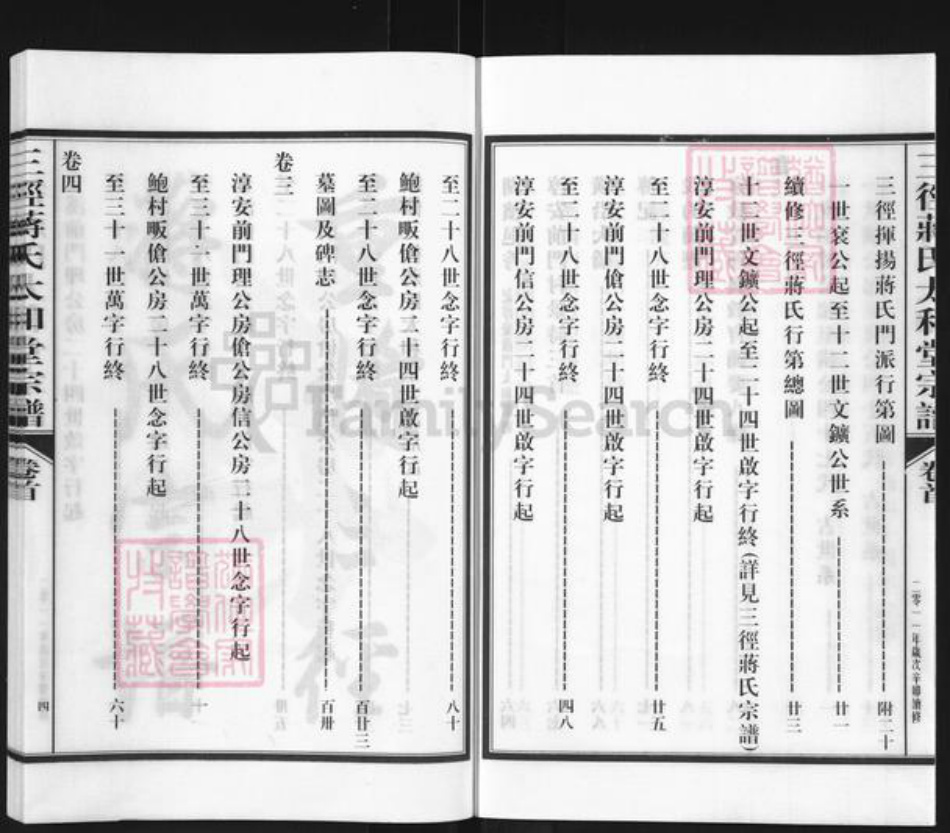 三徑蔣氏太和堂宗譜 卷首 二零一一年歲次辛卯續修
三徑揮揚蔣氏門派行第圖 附二十
一世袞公起至十二世文鑛公世系 廿一
續修三徑蔣氏行第總圖 廿三
十三世文鑛公起至二十四世啟字行終(詳見三徑蔣氏宗譜)
淳安前門理公房二十四世啟字行起
至二十八世念字行終 廿五
淳安前門傖公房二十四世啟字行起
至二十八世念字行終 四八
淳安前門信公房二十四世啟字行起
至二十八世念字行終 八十
鮑村畈傖公房二十四世啟字行起
至二十八世念字行終 百廿三
墓圖及碑志 百卅
卷三
淳安前門理公房傖公房信公房二十八世念字行起
至三十一世萬字行終 十一
鮑村畈傖公房二十八世念字行起
至三十一世萬字行終 六十
卷四
三徑蔣氏太和堂宗譜 卷首 四
FamilySearch